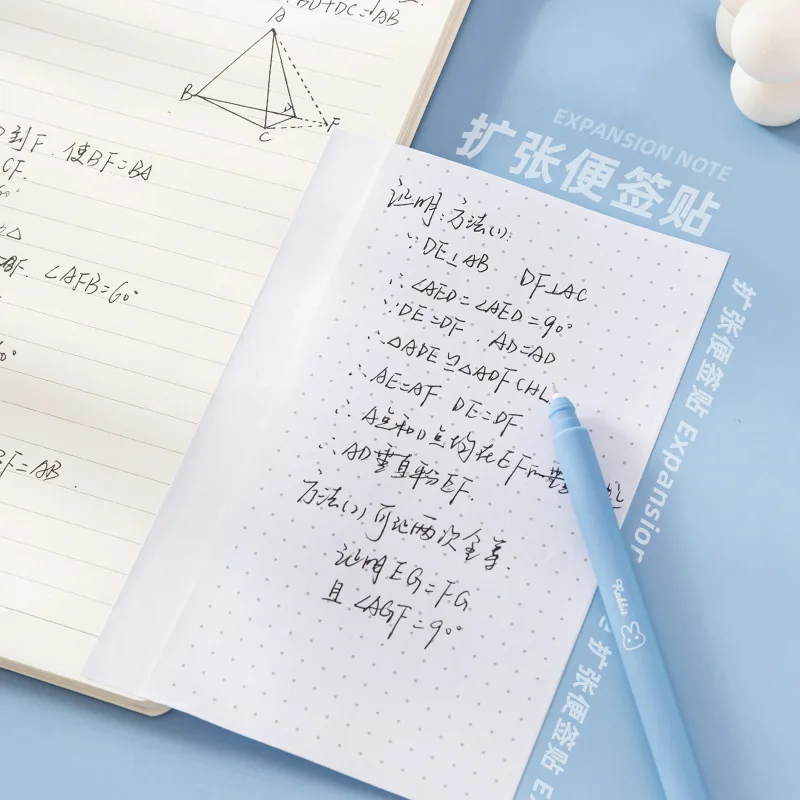 BD+DC=AB
A
B
D
C
F
到F. 使BF=BA
CF.
60°
△
BF. ∠AFB=60°
60°
BF=AB.
EXPANSION NOTE
扩张便签贴
证明:方法(1):
∵DE⊥AB DF⊥AC
∴∠AED=∠AED=90°
∵DE=DF. AD=AD
∴△ADE≌△ADF CHL
∴AE=AF DE=DF
∴A点和D点均在EF
∴AD垂直平分EF.
方法(2)可证两次全等.
证明EG=FG
且∠AGF=90°
扩张便签贴 Expansion
Rabbit
扩张便签贴 E